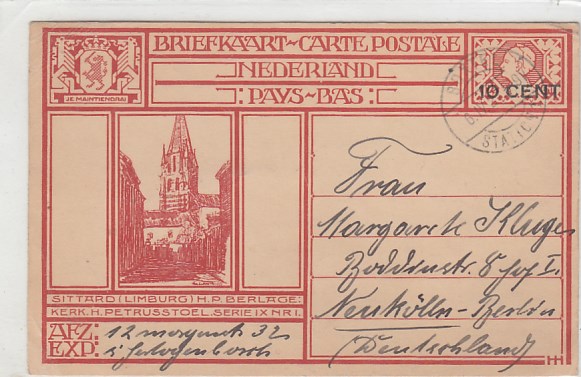 BRIEFKAART~CARTE POSTALE
NEDERLAND
PAYS~BAS
JE MAINTIENDRAI
10 CENT
STA
Frau
Margarete Kluge
Boddinstr. 8 I.
Neukölln-Berlin
(Deutschland)
SITTARD (LIMBURG) H.P. BERLAGE:
KERK. H. PETRUSSTOEL. SERIE IX NR 1.
AFZ: 32
EXP: s'hertogenbosch